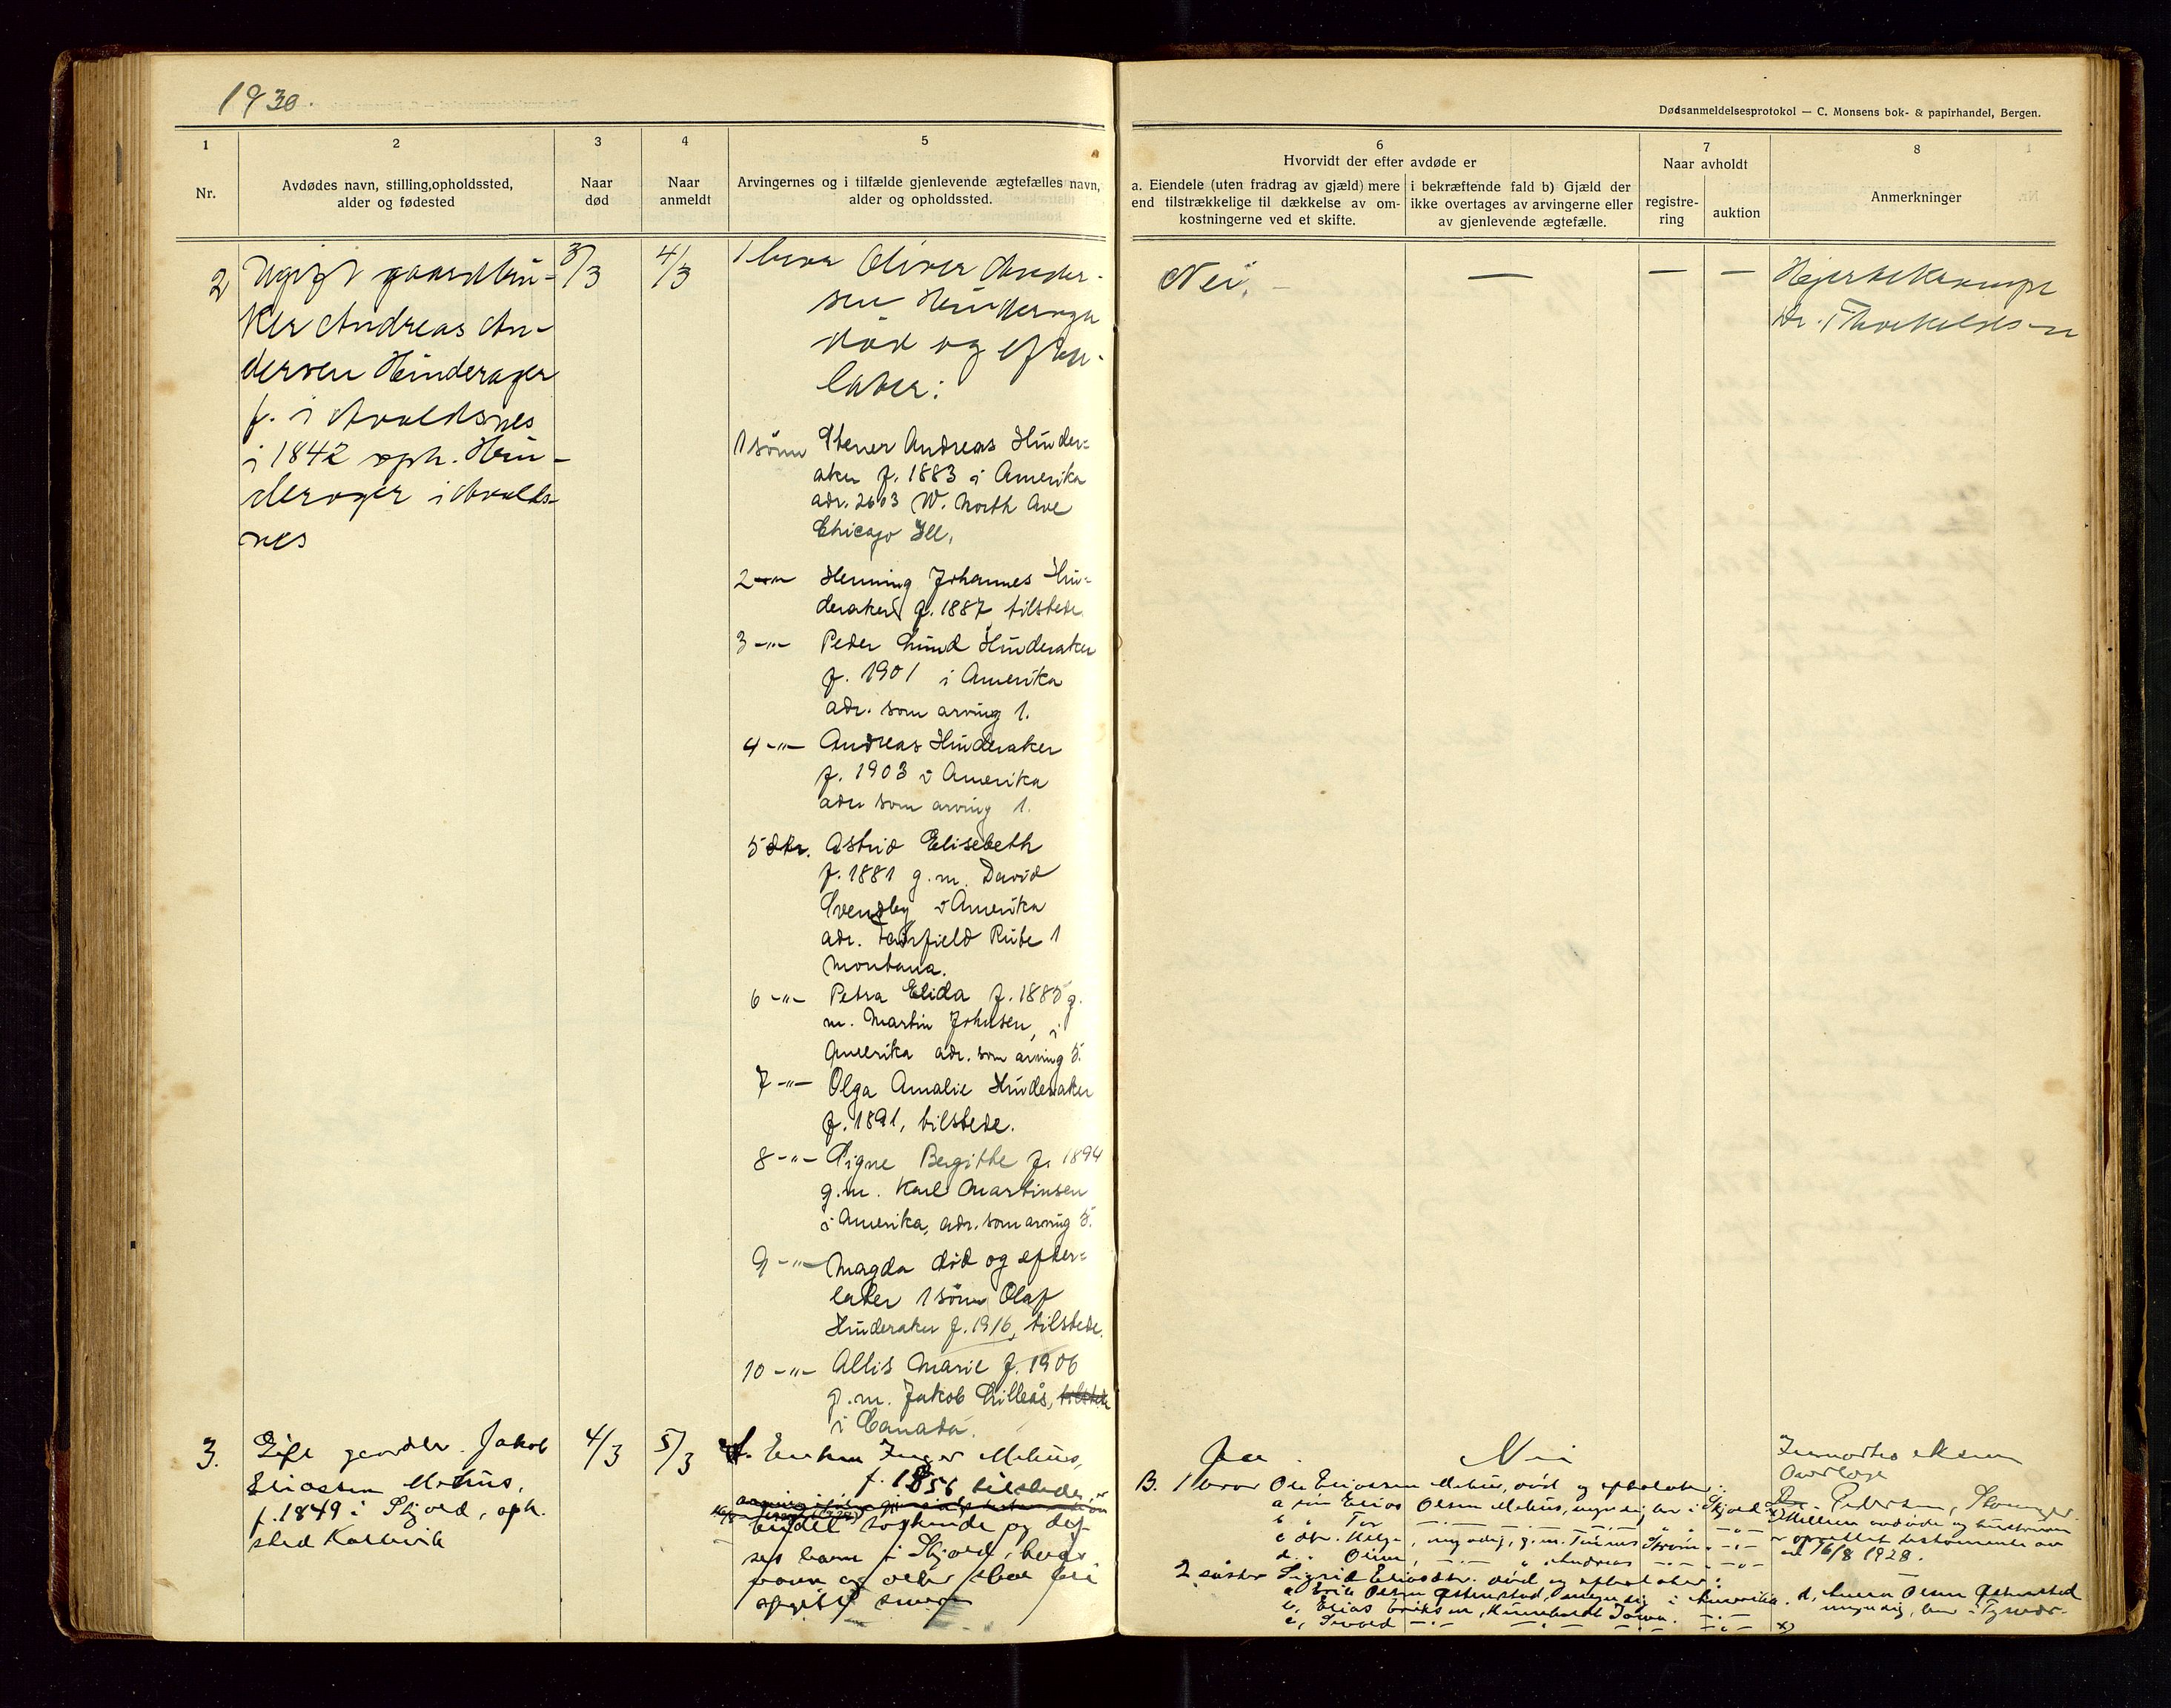 1930.
Dødsanmeldelsesprotokol — C. Monsens bok- & papirhandel, Bergen.
1
2
3
4
5
6
7
8
Nr.
Avdødes navn, stilling, opholdssted,
alder og fødested
Naar
død
Naar
anmeldt
Arvingernes og i tilfælde gjenlevende ægtefælles navn,
alder og opholdssted.
Hvorvidt der efter avdøde er
a. Eiendele (uten fradrag av gjæld) mere
end tilstrækkelige til dækkelse av om-
kostningerne ved et skifte.
i bekræftende fald b) Gjæld der
ikke overtages av arvingerne eller
av gjenlevende ægtefælle.
Naar avholdt
registre-
ring
auktion
Anmerkninger
2
Ugift gaardbru-
ker Andreas An-
dersen Hinderager
f. i Avaldsnes
i 1842 oph. Hin-
derager i Avalds-
nes
3/3
4/3
1 bror Oliver Ander-
sen Hinderager
død og efter-
later:
1 sönn Stener Andreas Hinder-
aker f. 1883 i Amerika
adr. 2603 W. North Ave
Chicago Ill.
2 -"- Henning Johannes Hin-
deraker f. 1887 tilstede
3 -"- Peder Lund Hinderaker
f. 1901 i Amerika
adr. som arving 1.
4 -"- Andreas Hinderaker
f. 1903 i Amerika
adr som arving 1.
5 dtr. Astrid Elisebeth
f. 1881 g.m. David
Svendby i Amerika
adr. Fairfield Rute 1
Montana.
6 -"- Petra Elida f. 1885 g.
m. Martin Johnsen, i
Amerika adr. som arving 5.
7 -"- Olga Amalie Hinderaker
f. 1891, tilstede.
8 -"- Signe Bergitte f. 1894
g.m. Karl Martinsen
i Amerika, adr. som arving 5.
9 -"- Magda död og efter-
later 1 sönn Olaf
Hinderaker f. 1916, tilstede.
10 -"- Allis Marie f. 1906
g.m. Jakob Lilleås, tilstede
i Canada.
Nei. —
—
—
—
Hjertekrampe
Dr. Thorkildsen
3.
Gift gaardbr. Jakob
Eliassen Mehus,
f. 1849 i Skjold, oph.
sted
4/3
5/3
Enken Inger Mehus,
f. 1856, tilstede,
söskende og des-
ses barn i Skjold, hvis
navn og alder skal bli
opgitt senere
Ja.
Nei
B. 1 bror Ole Eliassen Mehus, död og efterlater:
a sön Elias Olsen Mehus, myndig, bor i Skjold
b " Tor -"-
c dtr. Helga, myndig, g.m.
d " Oline, -"- " Andreas -"-
2 söster Sigrid Eliasdtr. död og efterlater:
a, Erik Olsen Östenstad, myndig i Amerika.
b, Elias Eriksen, Humboldt Iowa.
c,
d, Anna Olsen Östenstad
myndig, bor i Tysvær.
Overlæge
Dr. Pedersen, Stavanger.
Mellem avdöde og hustruen
er oprettet testamente av
16/8 1928.